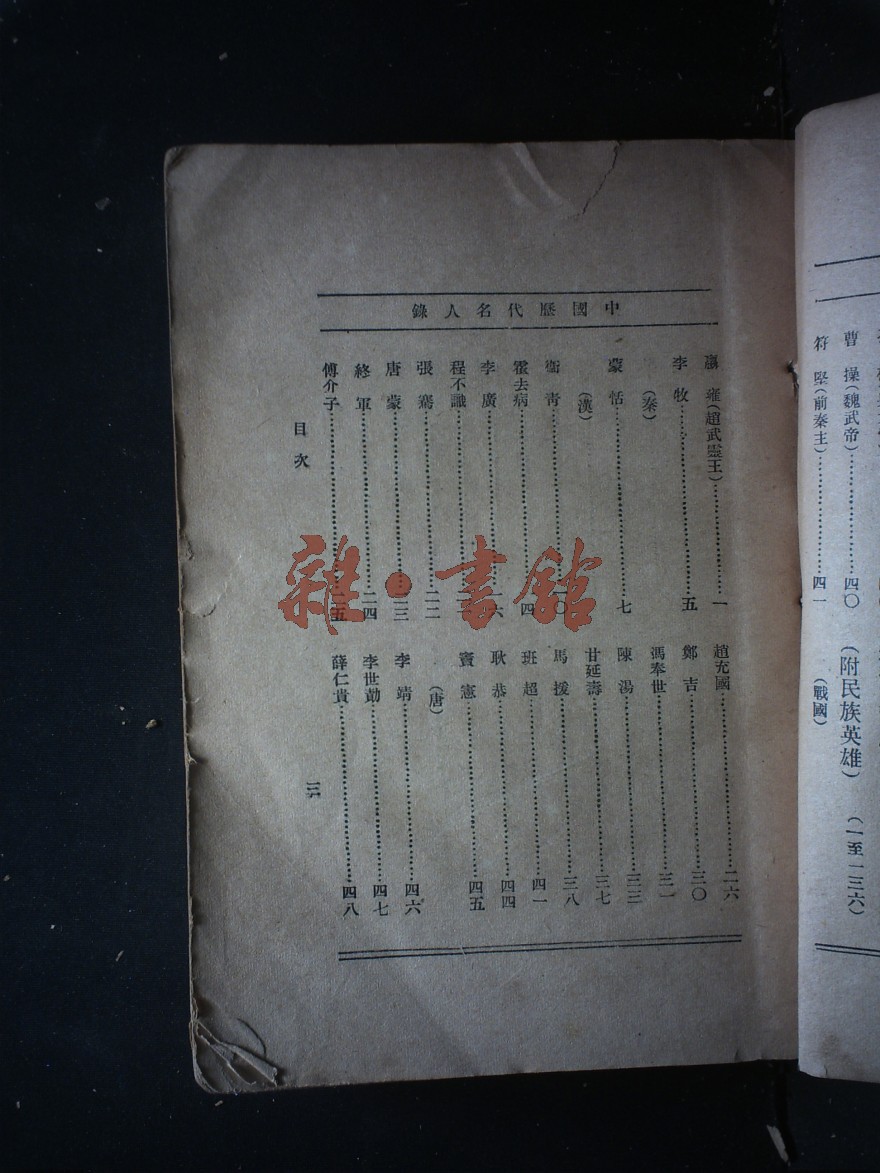 曹　操（魏武帝）…………四〇
符　堅（前秦主）…………四一
（附民族英雄）（一至一三六）
（戰國）
中國歷代名人錄
嬴　雍（趙武靈王）…………一
李　牧…………五
（秦）
蒙　恬…………七
（漢）
衞　青…………
霍去病…………
李　廣…………
程不識…………
張　騫…………二二
唐　蒙…………二三
終　軍…………二四
傅介子…………二五
趙充國…………二六
鄭　吉…………三〇
馮奉世…………三一
陳　湯…………三三
甘延壽…………三七
馬　援…………三八
班　超…………四一
耿　恭…………四四
竇　憲…………四五
（唐）
李　靖…………四六
李世勣…………四七
薛仁貴…………四八
目次
三
雜·書館